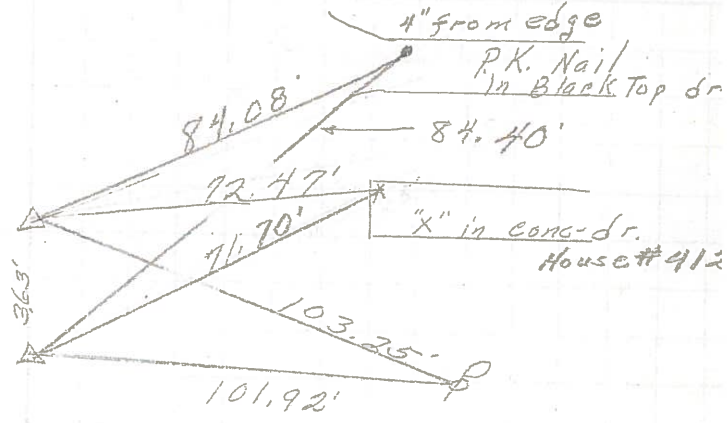 4" from edge
P.K. Nail
in Black Top dr
84.08'
84.40'
72.47'
71.70'
"X" in conc-dr.
House #412
3.63'
103.25'
101.92'